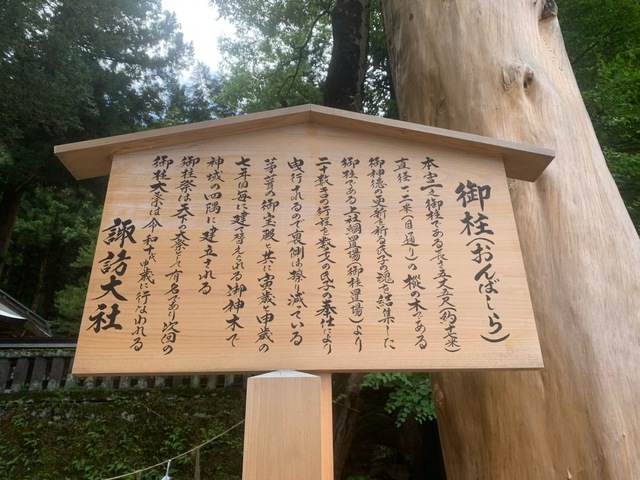 御柱(おんばしら)
本宮一之御柱である長さ五丈五尺(約十七米)
直径一、二米(目通り)の樅の木である
御神徳の更新を祈る氏子の魂を結集した
御柱である上社綱置場(御柱置場)より
二十数キロの行程を数千人の氏子の奉仕により
曳行されるので裏側は擦り減っている
茅葺の御宝殿と共に寅歳と申歳の
七年目毎に建て替えられる御神木で
神域の四隅に建立される
御柱祭は天下の大祭として有名であり次回の
御柱大祭は令和十戊申歳に行なわれる
諏訪大社